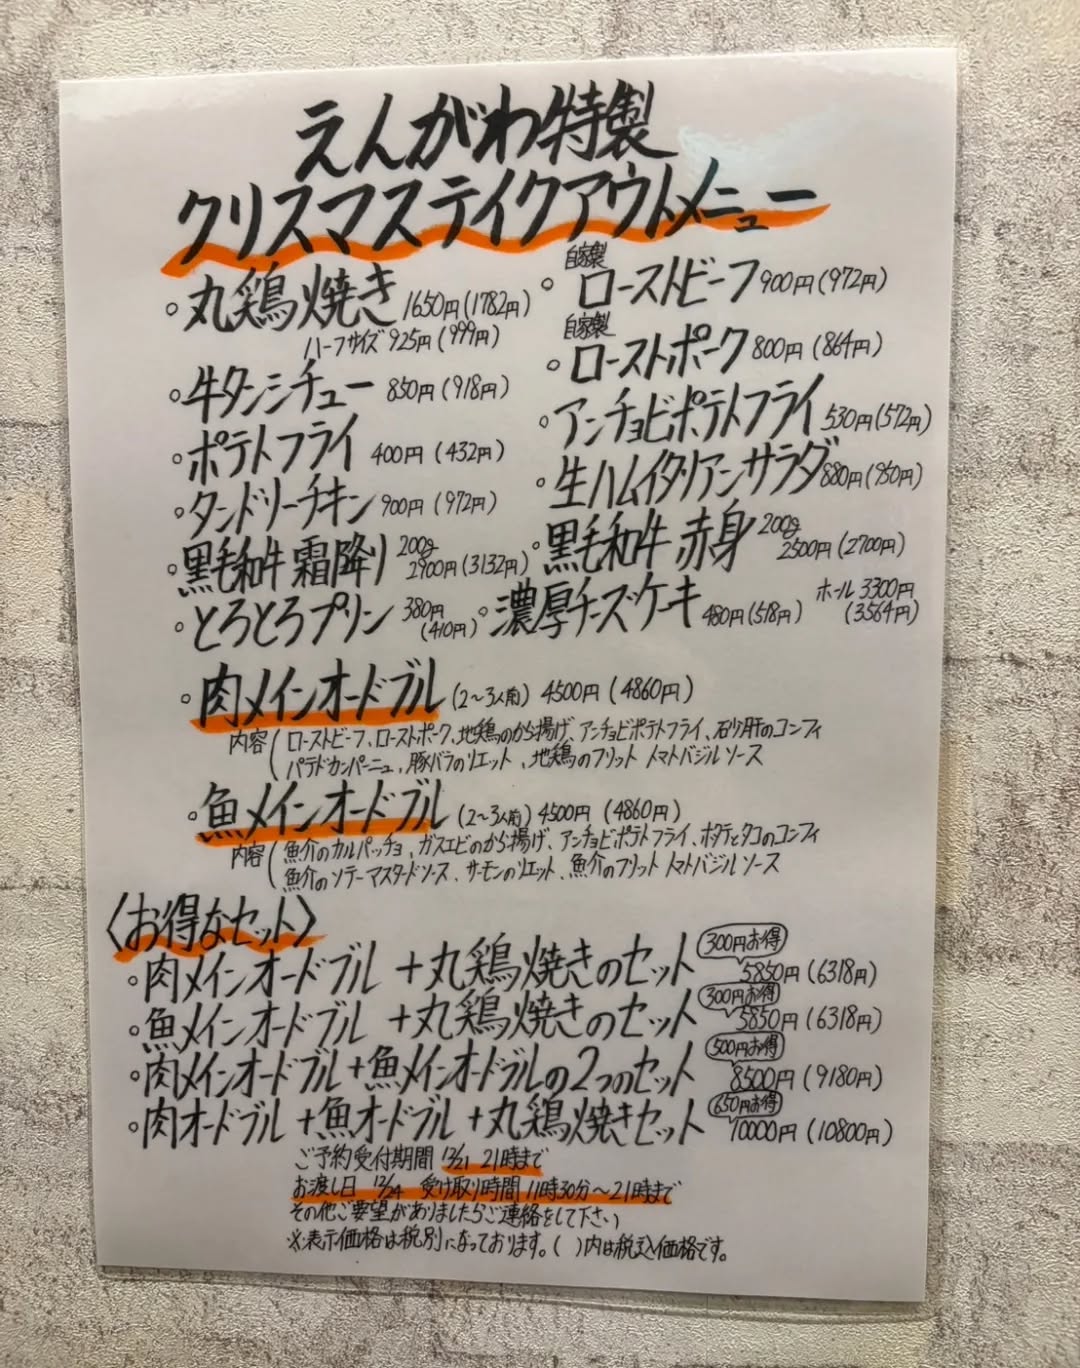 えんがわ特製
クリスマステイクアウトメニュー
。丸鶏焼き 1650円(1782円)
ハーフサイズ 925円(999円)
。牛タンシチュー 850円(918円)
。ポテトフライ 400円(432円)
。タンドリーチキン 900円(972円)
。黒毛和牛 霜降り 200g 2900円(3132円)
。とろとろプリン 380円(410円)
。自家製 ローストビーフ 900円(972円)
。自家製 ローストポーク 800円(864円)
。アンチョビポテトフライ 530円(572円)
。生ハムイタリアンサラダ 880円(950円)
。黒毛和牛 赤身 200g 2500円(2700円)
。濃厚チーズケーキ 480円(518円) ホール 3300円(3564円)
。肉メインオードブル (2〜3人前) 4500円(4860円)
内容(ローストビーフ、ローストポーク、地鶏のから揚げ、アンチョビポテトフライ、砂肝のコンフィ
パテドカンパーニュ、豚バラのリエット、地鶏のフリット トマトバジルソース
。魚メインオードブル (2〜3人前) 4500円(4860円)
内容(魚介のカルパッチョ、ガスエビのから揚げ、アンチョビポテトフライ、ホタテとタコのコンフィ
魚介のソテーマスタードソース、サーモンのリエット、魚介のフリット トマトバジルソース
〈お得なセット〉
。肉メインオードブル+丸鶏焼きのセット 300円お得 5850円(6318円)
。魚メインオードブル+丸鶏焼きのセット 300円お得 5850円(6318円)
。肉メインオードブル+魚メインオードブルの2つのセット 500円お得 8500円(9180円)
。肉オードブル+魚オードブル+丸鶏焼きセット 650円お得 10000円(10800円)
ご予約受付期間 12/21 21時まで
お渡し日 12/24 受け取り時間 11時30分〜21時まで
その他ご要望がありましたらご連絡をして下さい
※表示価格は税別になっております。( )内は税込価格です。